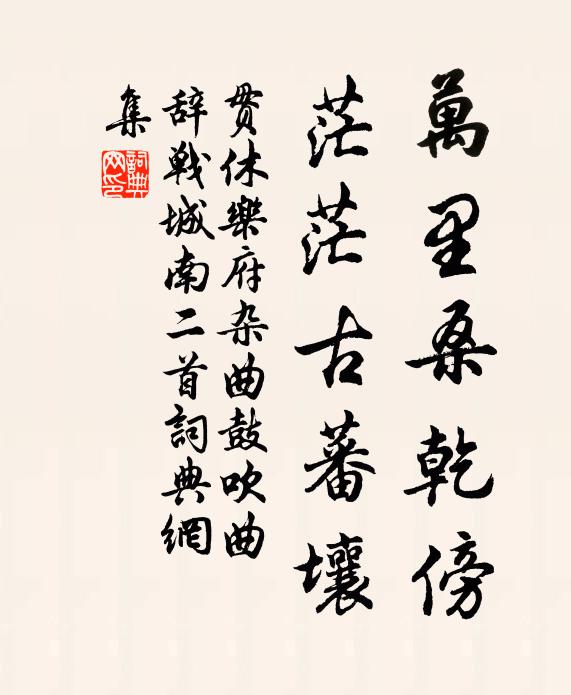 萬里桑乾傍
茫茫古蕃壤
貫休樂府杂曲鼓吹曲
辞戦城南二首詞典網
集
詞典网印